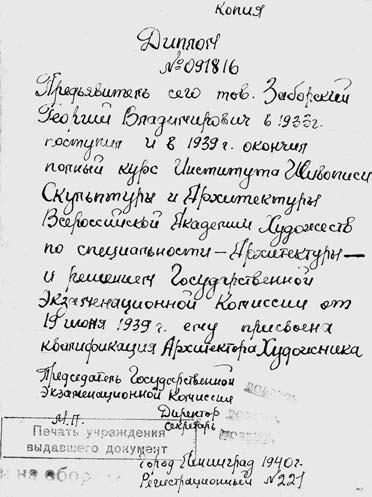 Копия
Диплом
№091816
Предьявитель сего тов. Заборский
Георгий Владимирович в 1933г.
поступил и в 1939 г. окончил
полный курс Института Живописи
Скульптуры и Архитектуры
Всероссийской Академии Художеств
по специальности — Архитектуры —
и решением Государственной
Экзаменационной Комиссии от
19 июня 1939 г. ему присвоена
квалификация Архитектора Художника
Председатель Государственной
Экзаменационной Комиссии
Директор
секретарь
М.П.
Печать учреждения
выдавшего документ
и на обор
Город Ленинград 1940г.
Регистрационный №221